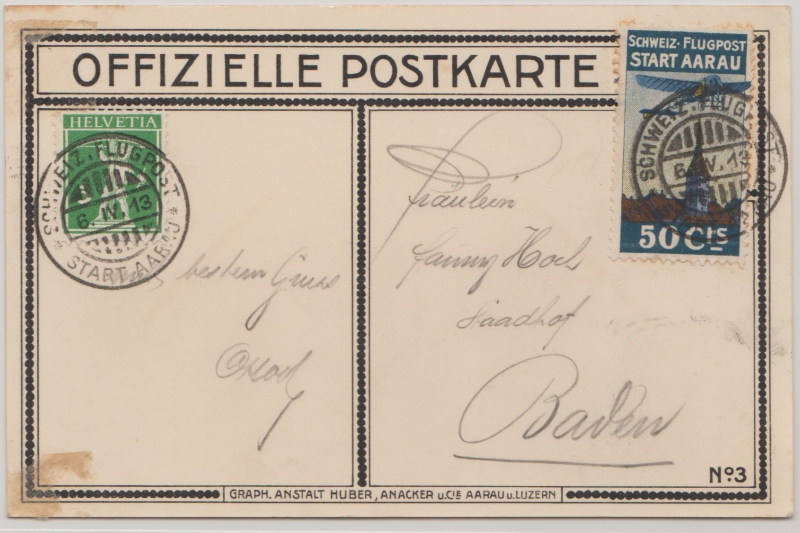 OFFIZIELLE POSTKARTE
SCHWEIZ. FLUGPOST
START AARAU
50 CTS
SCHWEIZ. FLUGPOST
6. IV. 13
HELVETIA
SCHWEIZ. FLUGPOST
6. IV. 13
* START AARAU *
bestem Gruss
Fräulein
Fanny Hoch
Baden
No. 3
GRAPH. ANSTALT HUBER, ANACKER u. CIE AARAU u. LUZERN